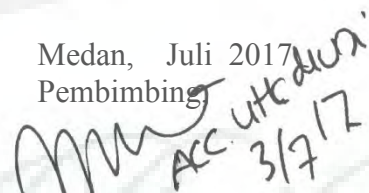 Medan, Juli 2017
Pembimbing,
ACC utk diuji
3/7/17